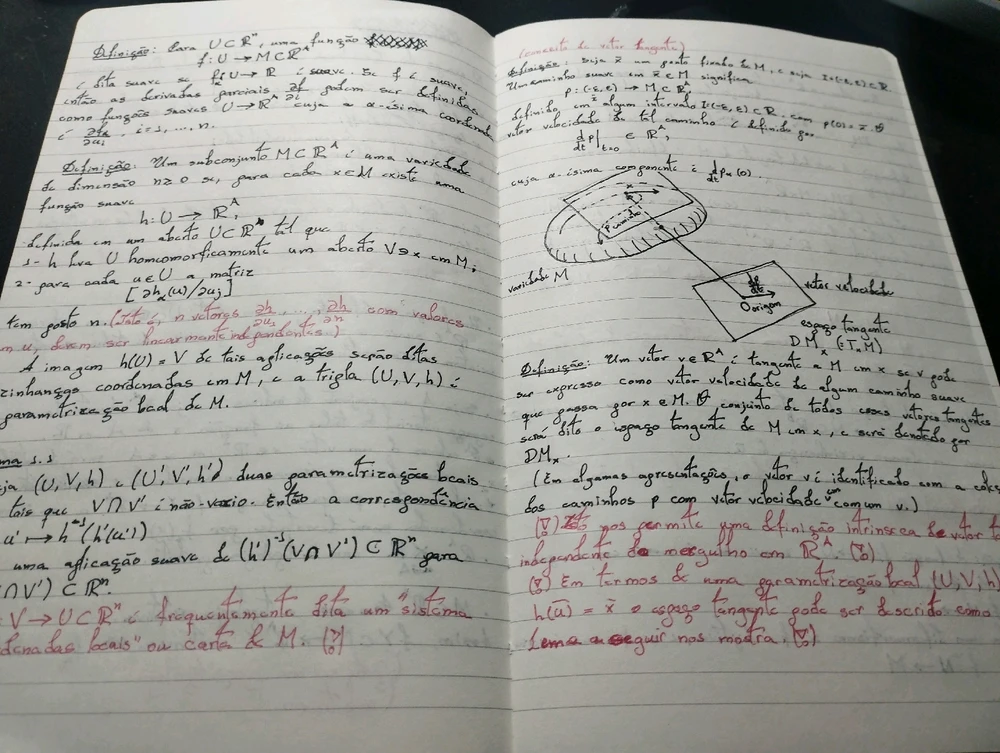 Definição: Para U⊂ℝⁿ, uma função
f: U → M⊂ℝᴬ
é dita suave se f_α: U → ℝ é suave. Se f é suave,
então as derivadas parciais ∂f/∂i podem ser definidas
como funções suaves U → ℝᴬ cuja a α-ísima coordenada
é ∂f_α/∂u_i, i=1, ..., n.
Definição: Um subconjunto M⊂ℝᴬ é uma variedade
de dimensão n≥0 se, para cada x∈M existe uma
função suave
h: U → ℝᴬ,
definida em um aberto U⊂ℝⁿ tal que
1- h leva U homeomorficamente um aberto V∋x em M;
2- para cada u∈U a matriz
[∂h_α(u)/∂u_j]
tem posto n. (Isto é, n vetores ∂h/∂u₁, ..., ∂h/∂n com valores
m u, devem ser linearmente independentes)
A imagem h(U) = V de tais aplicações serão ditas
zinhanças coordenadas em M, e a tripla (U, V, h) é
parametrização local de M.
ma 1.1
ja (U, V, h) e (U', V', h') duas parametrizações locais
tais que V∩V' é não-vazio. Então a correspondência
u' ↦ h⁻¹(h'(u'))
uma aplicação suave de (h')⁻¹(V∩V') ⊂ ℝⁿ para
∩V') ⊂ ℝⁿ.
V → U⊂ℝⁿ é frequentemente dita um "sistema
denadas locais" ou carta de M.
(conceito de vetor tangente)
Definição: Seja x̄ um ponto fixado de M, e seja I=(-ε,ε)⊂ℝ
Um caminho suave em x̄∈M significa
p: (-ε, ε) → M⊂ℝᴬ,
definido em algum intervalo I=(-ε, ε)⊂ℝ, com p(0)=x̄. O
vetor velocidade de tal caminho é definido por
dp/dt|_{t=0} ∈ ℝᴬ,
cuja α-ísima componente é dp_α/dt (0).
x
p caminho
variedade M
dp/dt
vetor velocidade
O origem
espaço tangente
DM_x (= T_xM)
Definição: Um vetor v∈ℝᴬ é tangente a M em x se v pode
ser expresso como vetor velocidade de algum caminho suave
que passa por x∈M. O conjunto de todos esses vetores tangentes
será dito o espaço tangente de M em x, e será denotado por
DM_x.
(Em algumas apresentações, o vetor v é identificado com a coleç
dos caminhos p com vetor velocidade em comum v.)
nos permite uma definição intrinseca de vetor ta
independente do mergulho em ℝᴬ.
Em termos de uma parametrização local (U, V, h)
h(ū) = x̄ o espaço tangente pode ser descrito como
Lema a seguir nos mostra.